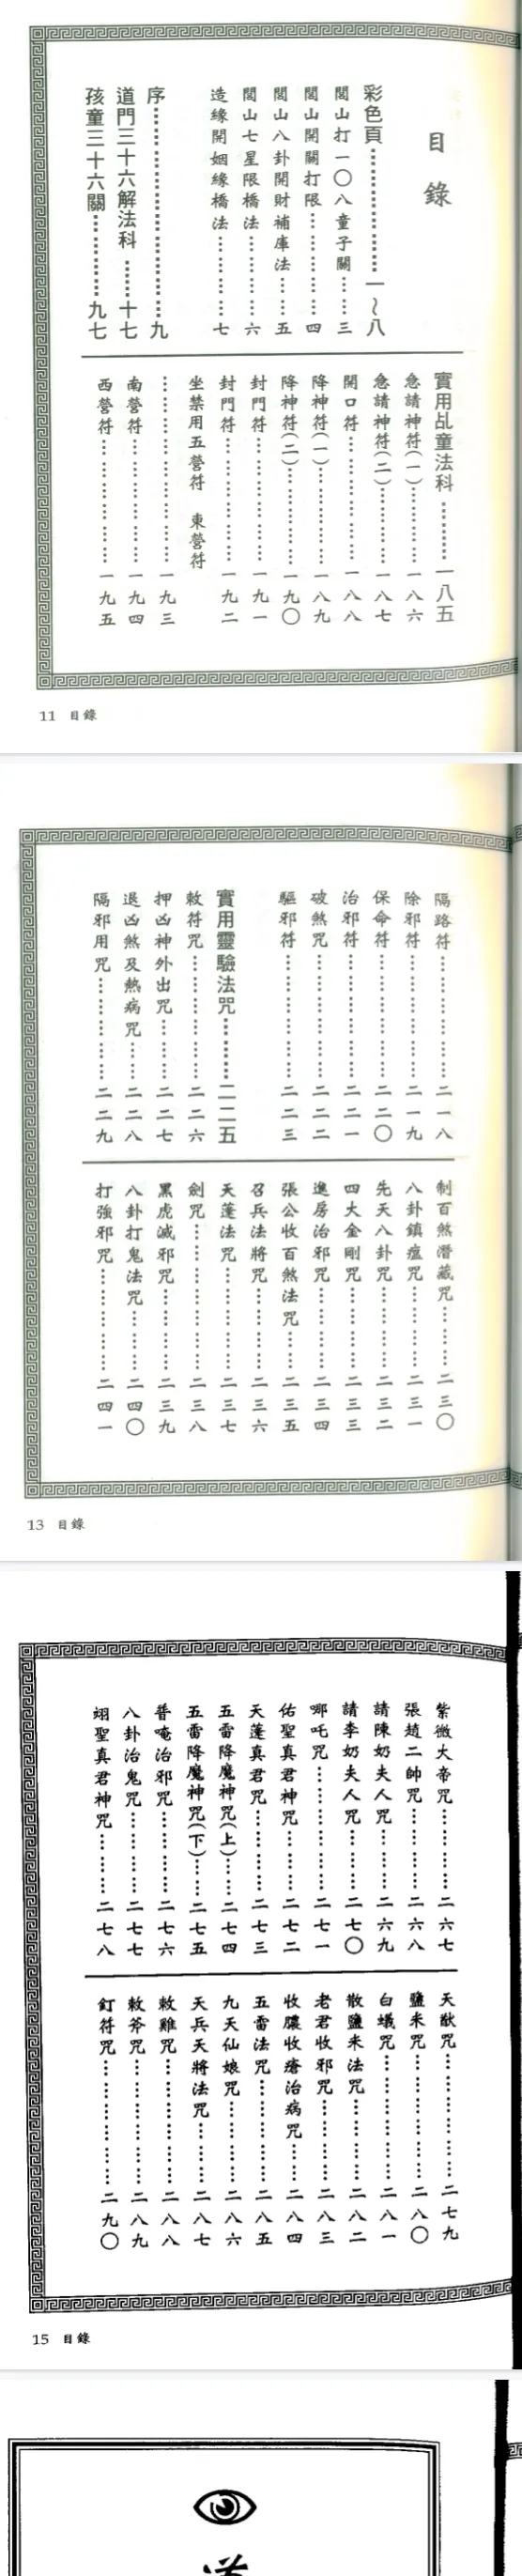 目錄
彩色頁…………………一~八
閭山打一〇八童子關……三
閭山開關打限……………四
閭山八卦開財補庫法……五
閭山七星限橋法…………六
造緣開姻緣橋法…………七
序…………………………九
道門三十六解法科……十七
孩童三十六關…………九七
實用乩童法科………一八五
急請神符(一)…………一八六
急請神符(二)…………一八七
開口符………………一八八
降神符(一)……………一八九
降神符(二)……………一九〇
封門符………………一九一
封門符………………一九二
坐禁用五營符 東營符
………………………一九三
南營符………………一九四
西營符………………一九五
11 目錄
隔路符………………二一八
除邪符………………二一九
保命符………………二二〇
治邪符………………二二一
破煞咒………………二二二
驅邪符………………二二三
實用靈驗法咒………二二五
敕符咒………………二二六
押凶神外出咒………二二七
退凶煞及熱病咒……二二八
隔邪用咒……………二二九
制百煞潛藏咒………二三〇
八卦鎮瘟咒…………二三一
先天八卦咒…………二三二
四大金剛咒…………二三三
進房治邪咒…………二三四
張公收百煞法咒……二三五
召兵法將咒…………二三六
天蓬法咒……………二三七
劍咒…………………二三八
黑虎滅邪咒…………二三九
八卦打鬼法咒………二四〇
打強邪咒……………二四一
13 目錄
紫微大帝咒…………二六七
張趙二帥咒…………二六八
請陳奶夫人咒………二六九
請李奶夫人咒………二七〇
哪吒咒………………二七一
佑聖真君神咒………二七二
天蓬真君咒…………二七三
五雷降魔神咒(上)……二七四
五雷降魔神咒(下)……二七五
普唵治邪咒…………二七六
八卦治鬼咒…………二七七
翊聖真君神咒………二七八
天猷咒………………二七九
鹽米咒………………二八〇
白蟻咒………………二八一
散鹽米法咒…………二八二
老君收邪咒…………二八三
收膿收瘡治病咒……二八四
五雷法咒……………二八五
九天仙娘咒…………二八六
天兵天將法咒………二八七
敕雞咒………………二八八
敕斧咒………………二八九
釘符咒………………二九〇
15 目錄